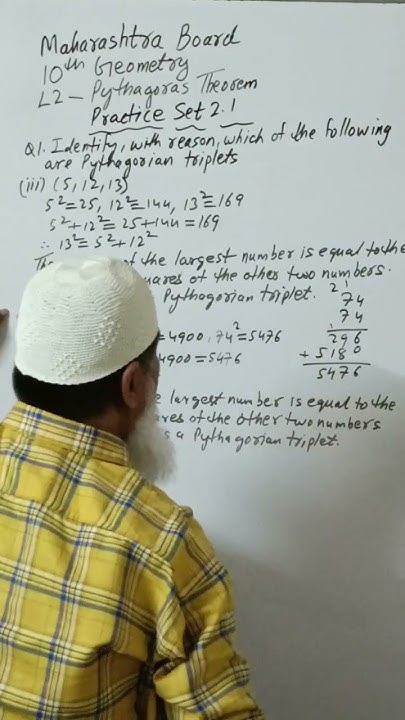 Maharashtra Board
10th Geometry
L2 - Pythagoras Theorem
Practice Set 2.1
Q1. Identify, with reason, which of the following
are Pythagorian triplets
(iii) (5, 12, 13)
5²=25, 12²=144, 13²=169
5²+12²= 25+144=169
∴ 13²= 5²+12²
of the largest number is equal to the
of the other two numbers.
Pythogorian triplet.
2 1
74
74
1
296
+ 5180
5476
=4900, 74²=5476
4900=5476
largest number is equal to the
of the other two numbers
is a Pythagorian triplet.